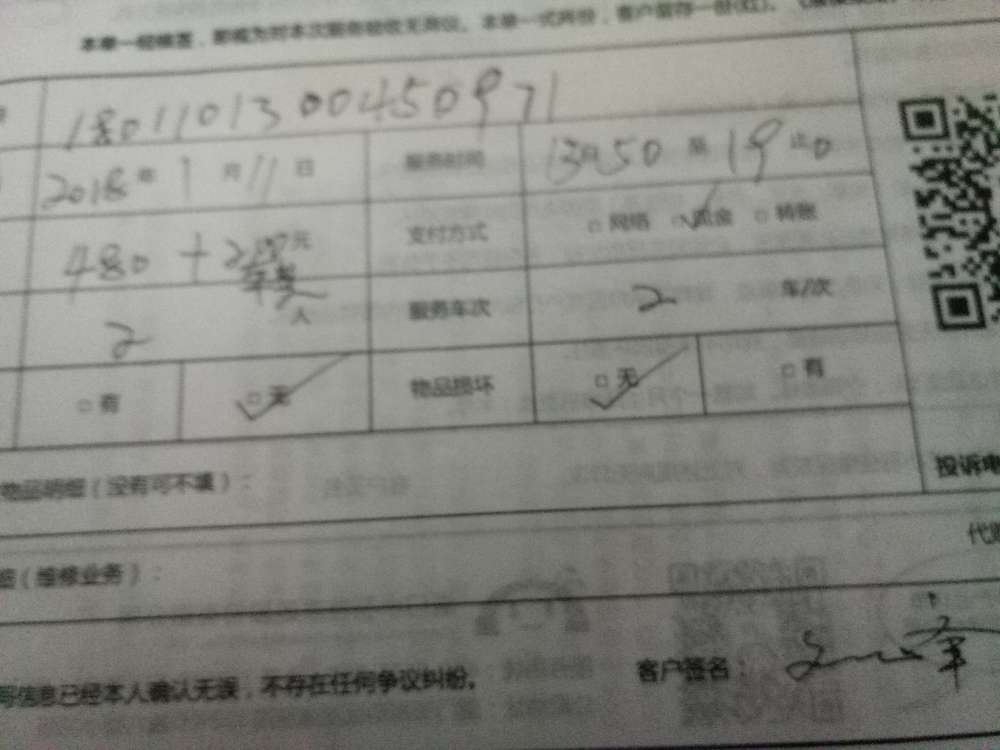 本单一经签署，即视为对本次服务验收无异议。本单一式两份，客户留存一份(红)。
18011013000450971
2018年1月11日 服务时间 13时50至19止0
480+200元 支付方式 □网络 □现金 □转账
2人 服务车次 2车/次
□有 □无 物品损坏 □无 □有
物品明细（没有可不填）：
投诉电
（维修业务）：
信息已经本人确认无误，不存在任何争议纠纷。 客户签名：